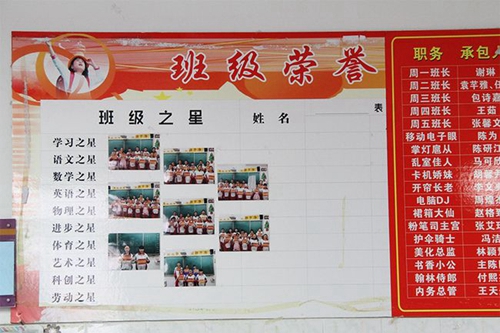 班级荣誉
班级之星 姓名 表
学习之星
语文之星
数学之星
英语之星
物理之星
进步之星
体育之星
艺术之星
科创之星
劳动之星
职务 承包人
周一班长 谢琳
周二班长 袁芊雅、任
周三班长 包诗嘉
周四班长 王茹
周五班长 张馨文
移动电子眼 陈为
掌灯扈从 陈研江
乱室佳人 马可欣
卡机娇妹
开帘长老 李文
电脑DJ
裙箱大仙 赵格
粉笔司主宫 张艾
护伞骑士 冯
美化总监 林颖
书香小公 主陈
翰林侍郎 付熙
内务总管 王天